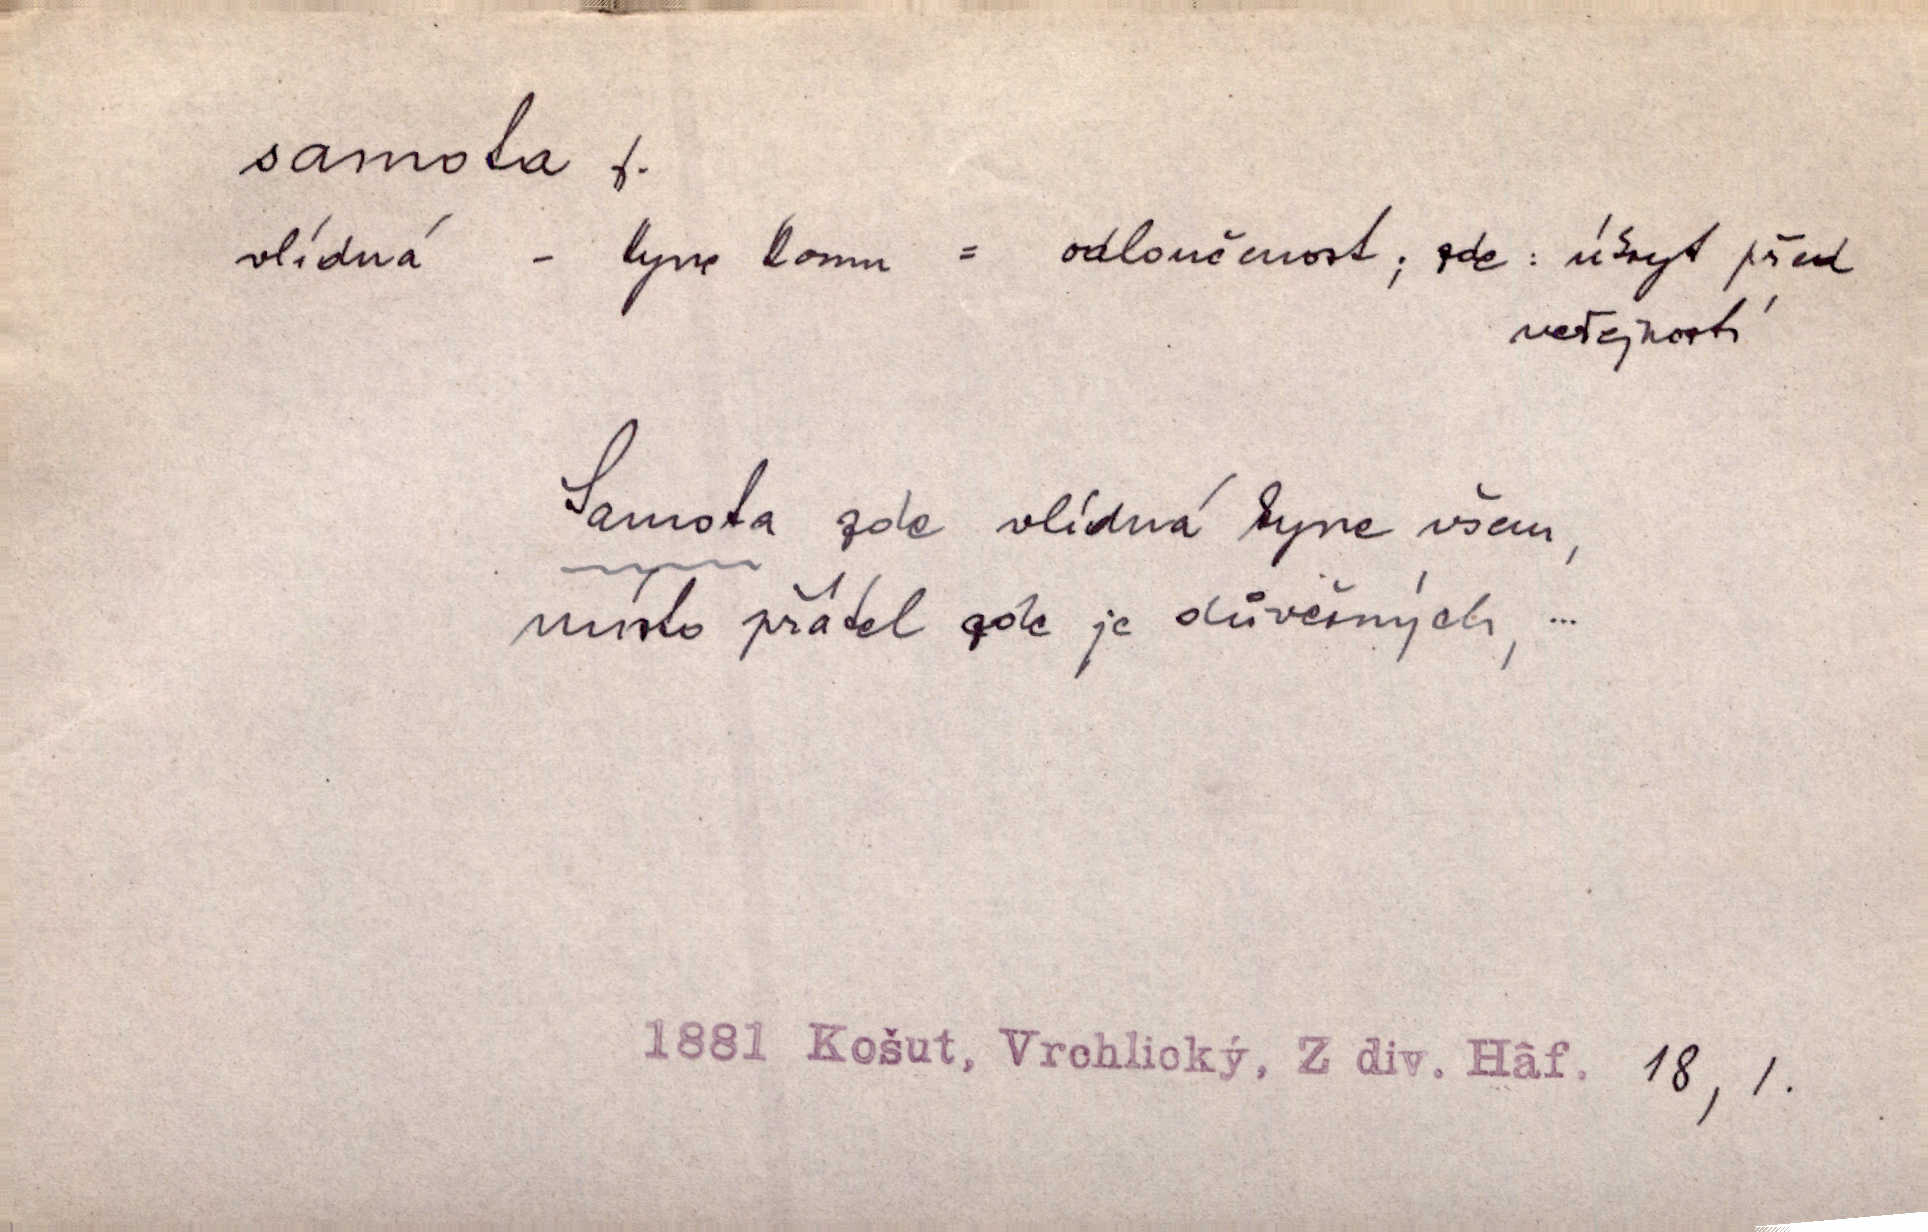 samota f.
vlídná - kyne komu = odloučenost; zde: úkryt před
veřejností
Samota zde vlídná kyne všem,
místo přátel zde je důvěrných, ...
1881 Košut, Vrchlický, Z div. Hâf. 18, 1.